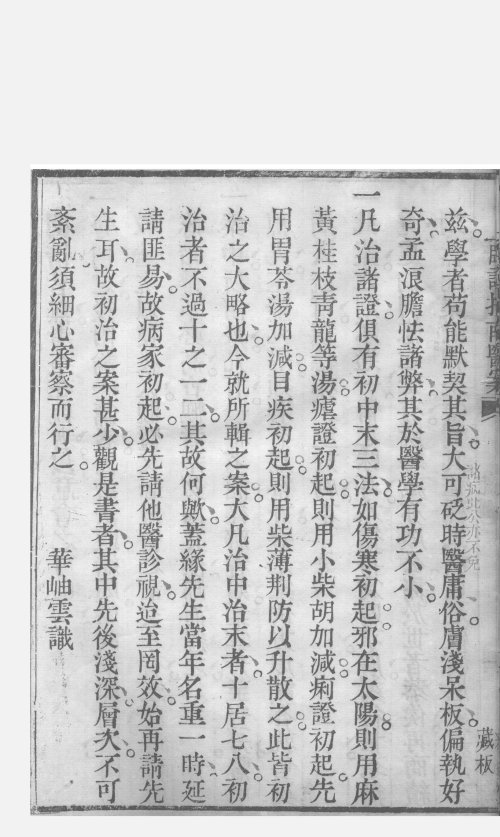 茲學者苟能默契其旨大可砭時醫庸俗膚淺呆板偏執好
奇孟浪膽怯諸弊其於醫學有功不小
一凡治諸證俱有初中末三法如傷寒初起邪在太陽則用麻
黃桂枝青龍等湯瘧證初起則用小柴胡加減痢證初起先
用胃苓湯加減目疾初起則用柴薄荆防以升散之此皆初
治之大略也今就所輯之案大凡治中治末者十居七八初
治者不過十之一二其故何歟蓋緣先生當年名重一時延
請匪易故病家初起必先請他醫診視迨至罔效始再請先
生耳故初治之案甚少觀是書者其中先後淺深層次不可
紊亂須細心審察而行之 華岫雲識
藏板